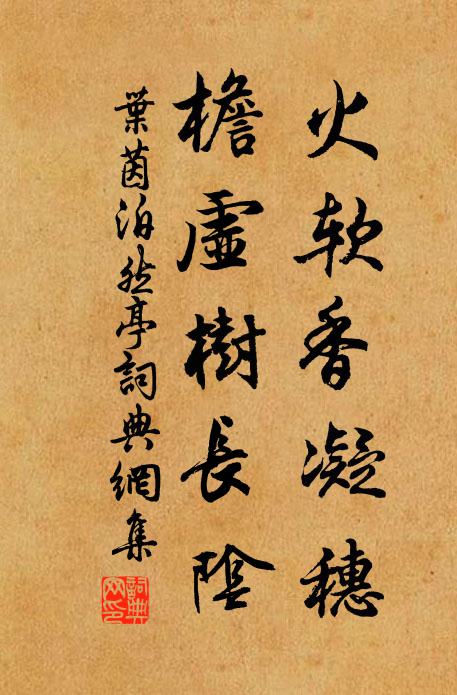 火软香凝穗
檐虚樹長陰
葉茵泊然亭詞典網集
詞典網印